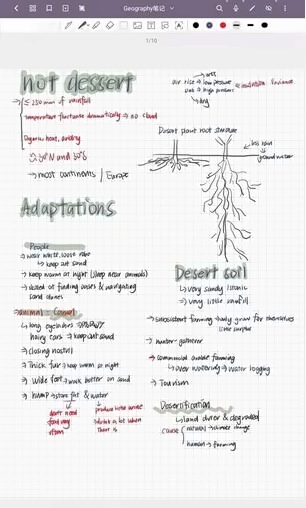 Geography笔记
1/10
hot dessert
≤ 250 mm of rainfall
temperature fluctuate dramatically → no cloud
30°N and 30°S
→ most continents / Europe
air rise → low pressure
sink → high pressure
→ dry
Desert plant root structure
less rain
ground water
Adaptations
People
→ wear white, loose robe
↳ keep out sand
→ keep warm at night (sleep near animals)
→ skilled at finding oases & navigating
sand dunes
→ animal - Camel
→ long eyelashes
hairy ears → keep out sand
→ closing nostril
→ Thick fur → keep warm at night
→ wide feet → walk better on sand
→ hump → store fat & water
don't need
food very
often
produce little urine
drink a lot when
there is
Desert soil
→ very sandy
→ very little rainfall
→ subsistent farming → only grow for themselves
little surplus
→ hunter-gatherer
→ commercial arable farming
↳ over watering → water logging
→ Tourism
Desertification
↳ land drier & degraded
cause
natural → climate change
human → farming